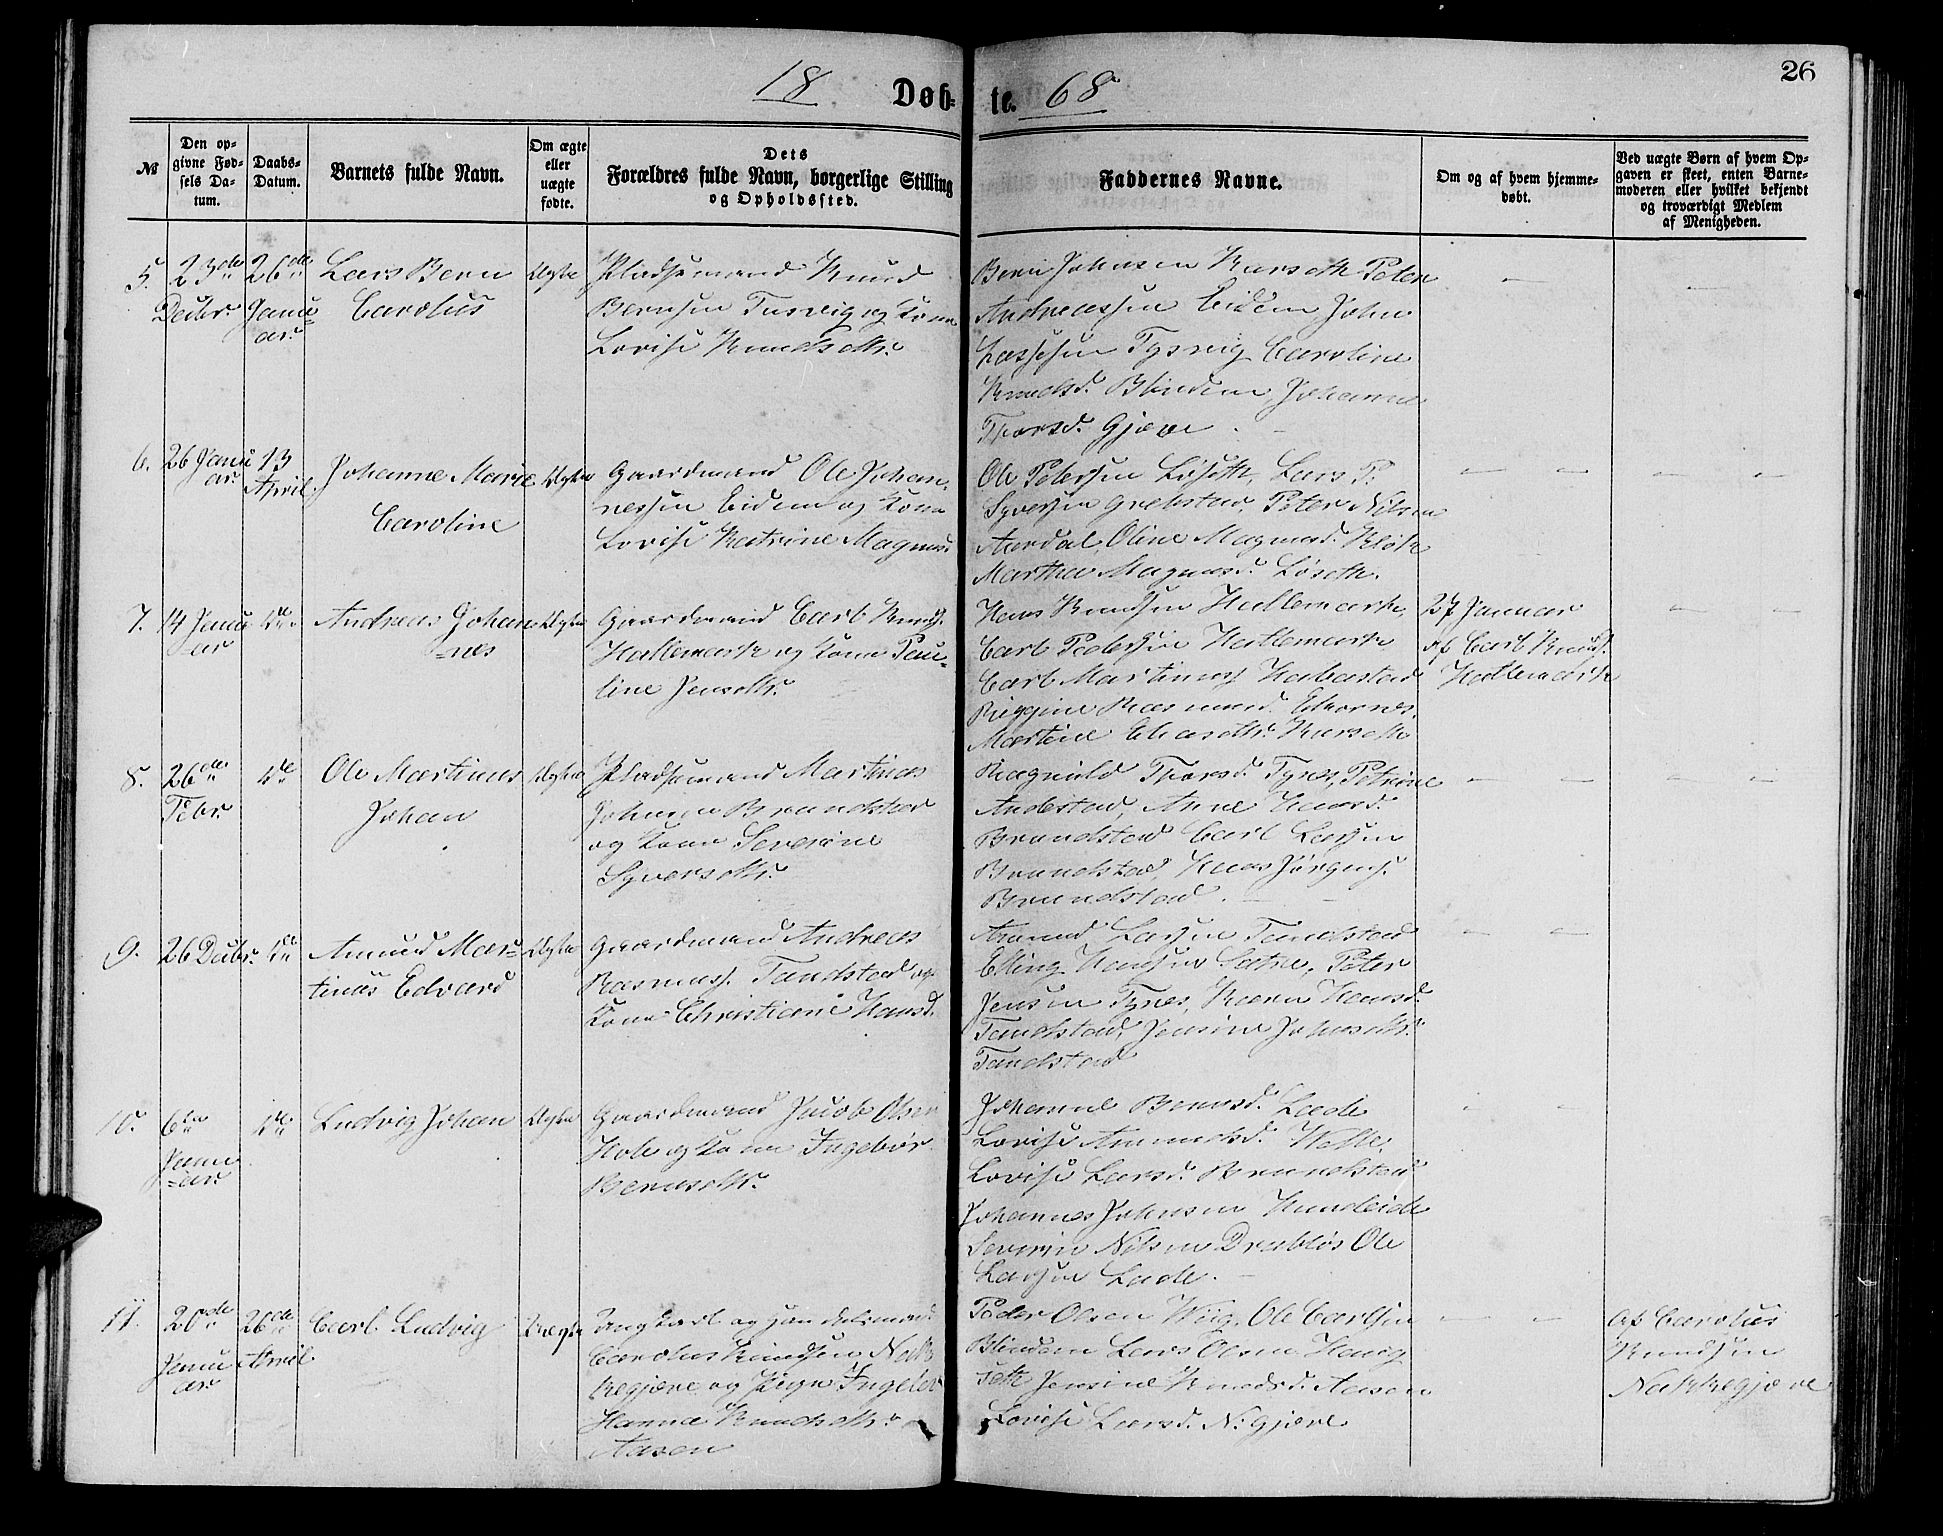 26
18 Døb-
te. 68
№
Den op-
givne Fød-
sels Da-
tum.
Daabs-
Datum.
Barnets fulde Navn.
Om ægte
eller
uægte
fødte.
Dets
Forældres fulde Navn, borgerlige Stilling
og Opholdssted.
Faddernes Navne.
Om og af hvem hjemme-
døbt.
Ved uægte Børn af hvem Op-
gaven er skeet, enten Barne-
moderen eller hvilket bekjendt
og troværdigt Medlem
af Menigheden.
5.
23de
Decbr.
26de
Janu-
ar.
Lars Bern
Carolus
Ægte
Pladsemand Knud
Bernsen Tusvig og Kone
Lovise Knudsdtr.
Bern Johnsen Kurseth Peter
Andreassen Eidem John
Lassesen Tysvig Caroline
Knudsd. Blindem Johanne
Thorsd. Gjære.
6.
26 Janu
ar.
13
April
Johanne Marie
Caroline
Ægte
Gaardmand Ole Johan-
nessen Eidem og Kone
Lovise Katrine Magnus.
Ole Petersen Løseth, Lars P.
Syversen Grebstad, Peter Nilsen
Aurdal, Oline Magnusd. Kløk
Martha Magnusd. Løseth.
7.
14 Janu
ar
Do
Andreas Johan-
nes
Ægte
Gaardmand Carl Knuds.
Hatlemark og Kone Pau-
line Jensdtr.
Hans Knudsen Hatlemark,
Carl Pedersen Hatlemark
Carl Martinus Habostad
Reggine Rasmusd. Ekornes,
Martine Eliasdtr. Kurseth
27 Januar
af Carl Knuds.
Hatlemark
8.
26de
Febr.
Do
Ole Martinus
Johan
Ægte
Pladsemand Martinus
Johnsen Brundstad
og Kone Severine
Syversdtr.
Ragnild Thorsd. Tynes, Petrine
Andestad, Anne Hansd.
Brundstad Carl Larsen
Brundstad, Knus Jørgens.
Brundstad.
9.
26 Decbr.
Do
Amund Mar-
tinus Edvard
Ægte
Gaardmand Andreas
Rasmus. Tandstad og
Kone Christiane Hansd.
Amund Larsen Tandstad
Elling Hansen Sætre, Peter
Jensen Tynes, Karen Hansd.
Tandstad, Jensine Johnsdtr.
Tandstad
10.
6te
Janu
-ar.
Do
Ludvig Johan
Ægte
Gaardmand Jacob Olsen
Hole og Kone Ingebor
Berntsdtr.
Johanne Berntsd. Lade
Lovise Amundsd. Welle.
Lovise Larsd. Brundstad
Johannes Johnsen Hundeide
Severin Nilsen Drabløs Ole
Larsen Lade.
11.
20de
Janu
ar.
26de
April
Carl Ludvig
Uægte
Ungkarl og Handelsmand
Carolus Knudsen Nak-
kegjære og Pige Ingeb.
Hanna Knudsdtr.
Aasen
Peder Olsen Wiig, Ole Carlsen
Blindem Lars Olsen Haug
seth Jensine Knudsd. Aasen
Lovise Larsd. N: Gjære.
af Carolus
Knudsen
Nakkegjære